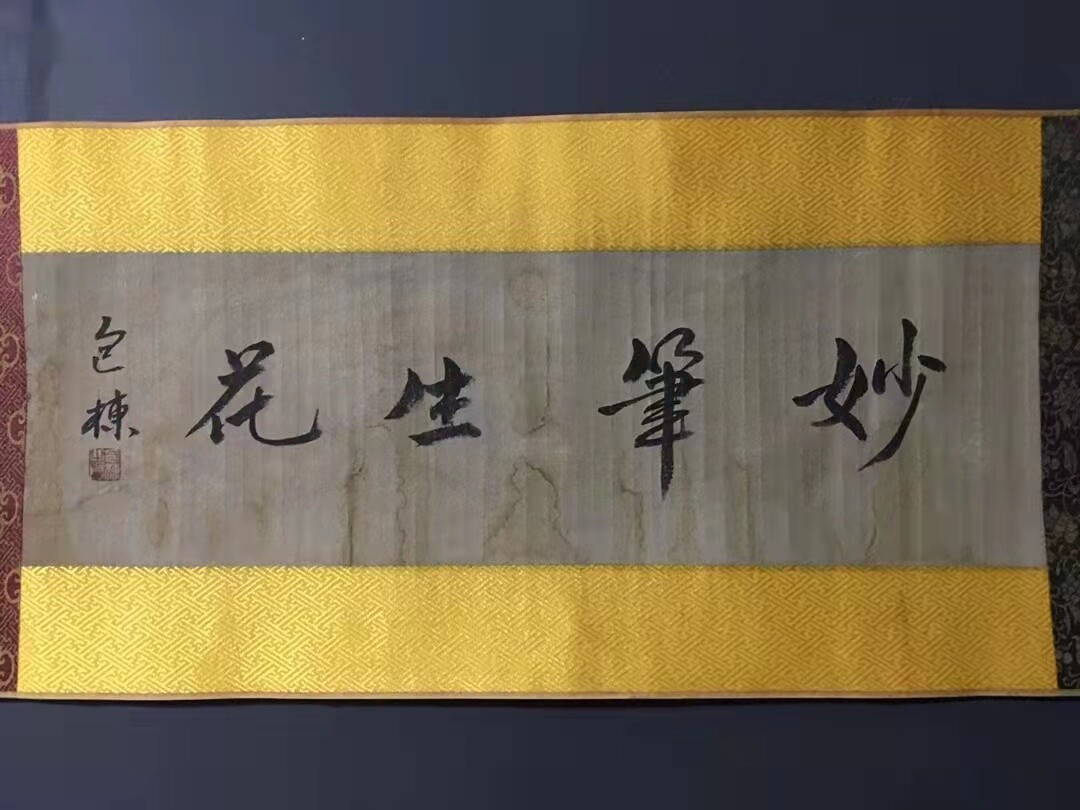 妙筆生花
包棟